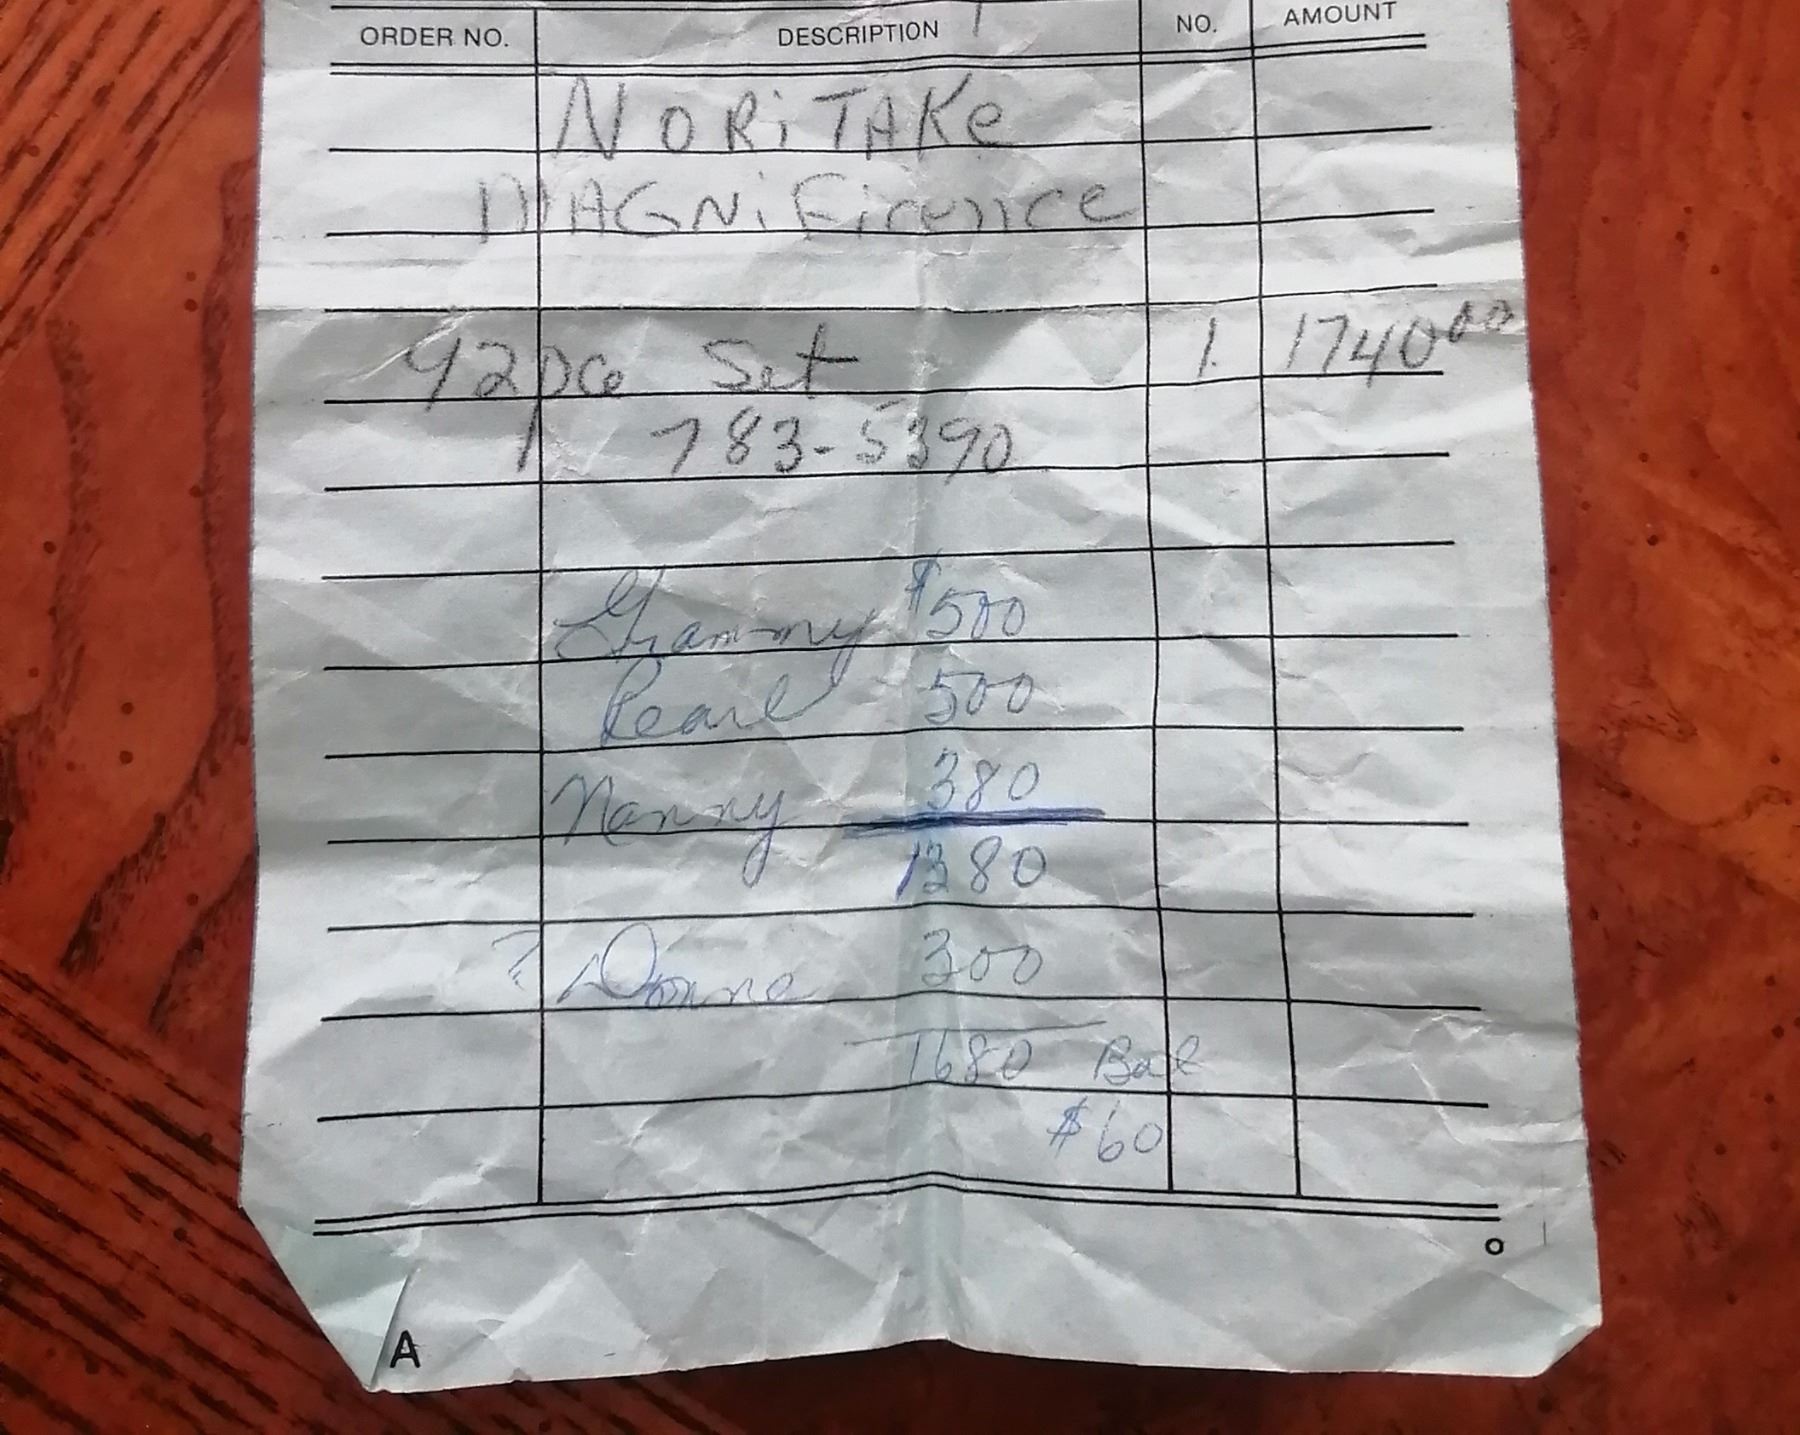 ORDER NO. DESCRIPTION NO. AMOUNT
NORiTAKe
MAGNiFicence
92pce Set 1. 1740 00
783-5390
Grammy $500
Pearl 500
Nanny 380
1380
? Donna 300
1680 Bal
$60
O
A